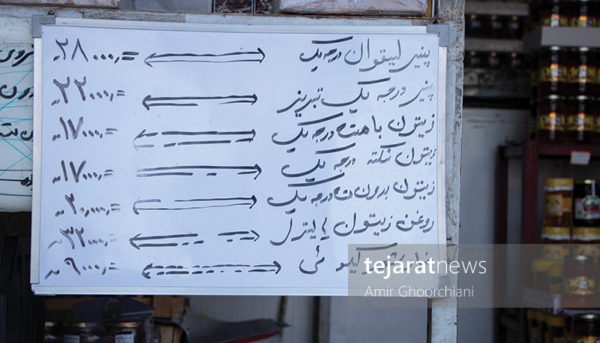 پنیر لیقوان درجه یک ۲۸۰۰۰=
پنیر درجه یک تبریز ۲۲۰۰۰=
زیتون با هسته درجه یک ۱۷۰۰۰=
زیتون شکسته درجه یک ۱۷۰۰۰=
زیتون بدون هسته درجه یک ۲۰۰۰۰=
روغن زیتون ۱ لیتر ۳۲۰۰۰=
کیلوئی ۹۰۰۰=
tejaratnews
Amir Ghoorchiani